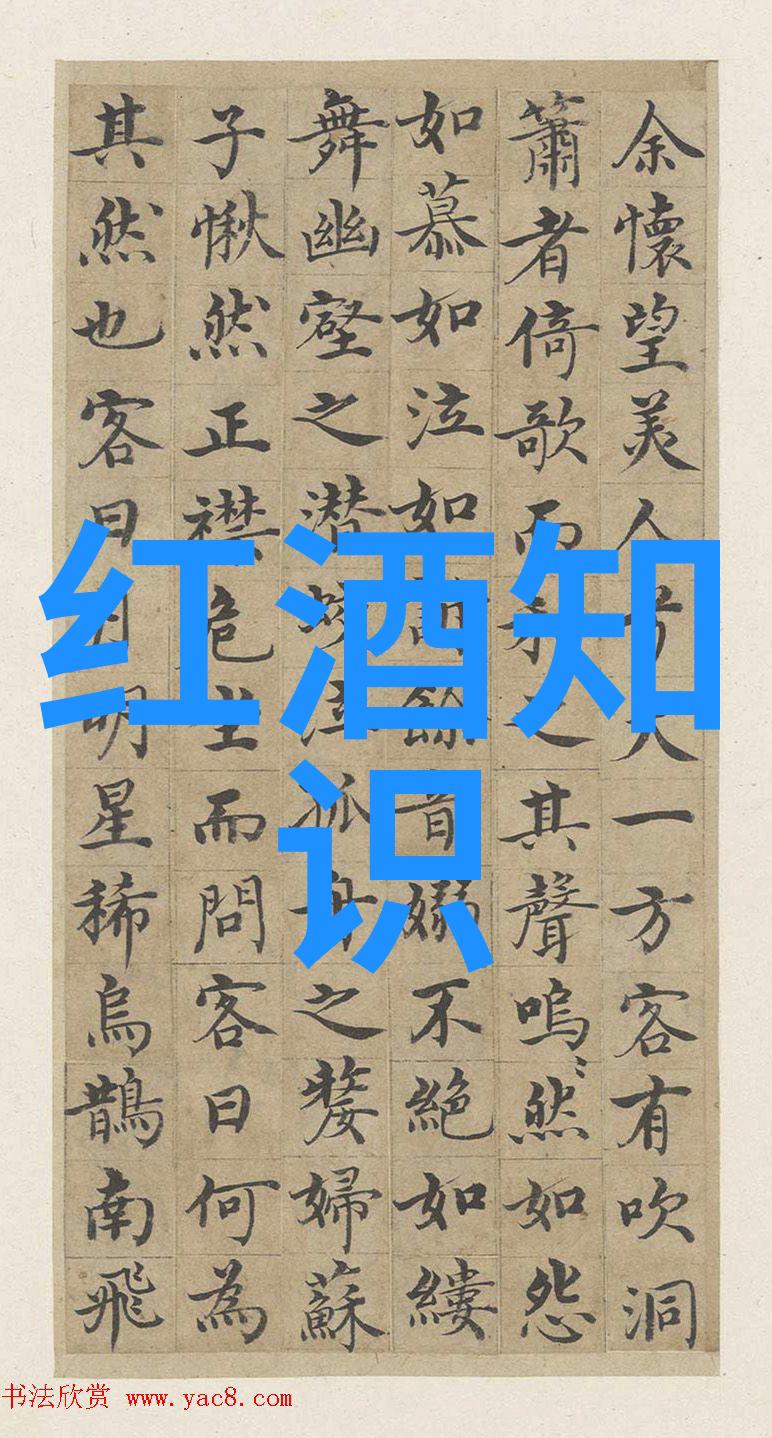 余懷望美人兮天一方客有吹洞
簫者倚歌而和之其聲嗚〻然如怨
如慕如泣如訴餘音嫋不絕如縷
舞幽壑之潛蛟泣孤舟之嫠婦蘇
子愀然正襟危坐而問客曰何為
其然也客曰月明星稀烏鵲南飛
红酒知
识
书法欣赏 www.yac8.com